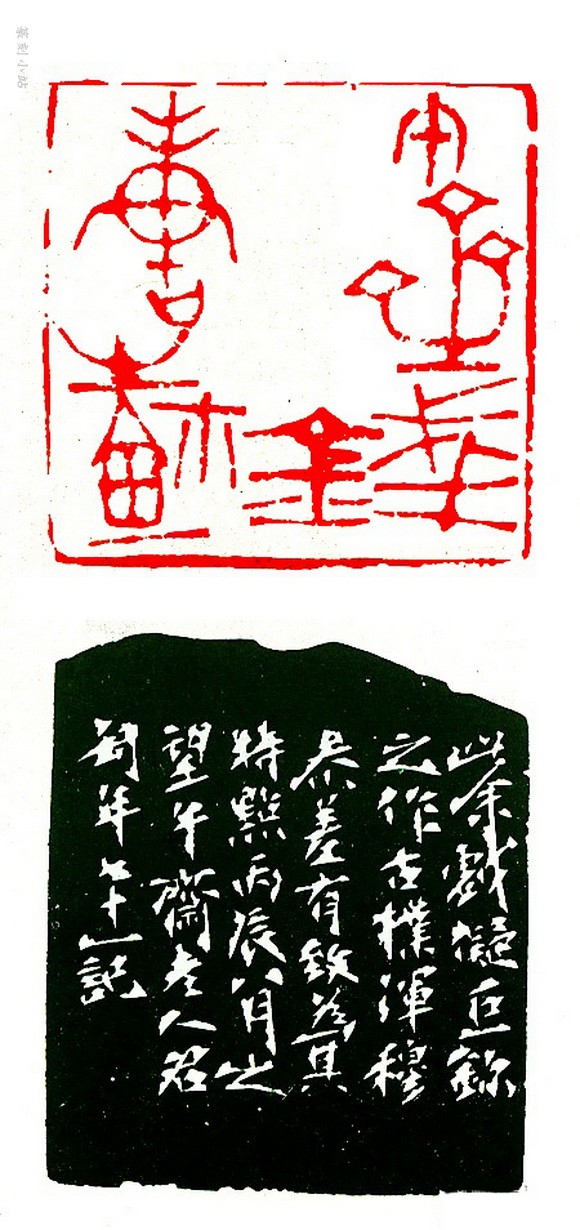 篆刻小站
此余戲擬巨鉨
之作古樸渾穆
參差有致為其
特點丙辰八月之
望午齋老人君
匋年七十一記